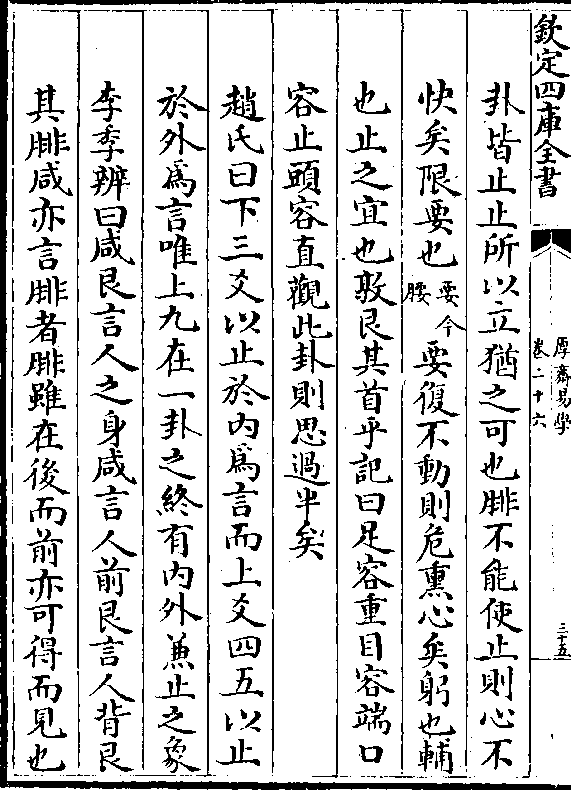 欽定四庫全書
厚齋易學
卷二十六
三十五
卦皆止止所以立猶之可也腓不能使止則心不
快矣限要也要今腰要復不動則危熏心矣躬也輔
也止之宜也敦艮其首乎記曰足容重目容端口
容止頭容直觀此卦則思過半矣
趙氏曰下三爻以止於内爲言而上爻四五以止
於外爲言唯上九在一卦之終有内外兼止之象
李季辨曰咸艮言人之身咸言人前艮言人背艮
其腓咸亦言腓者腓雖在後而前亦可得而見也